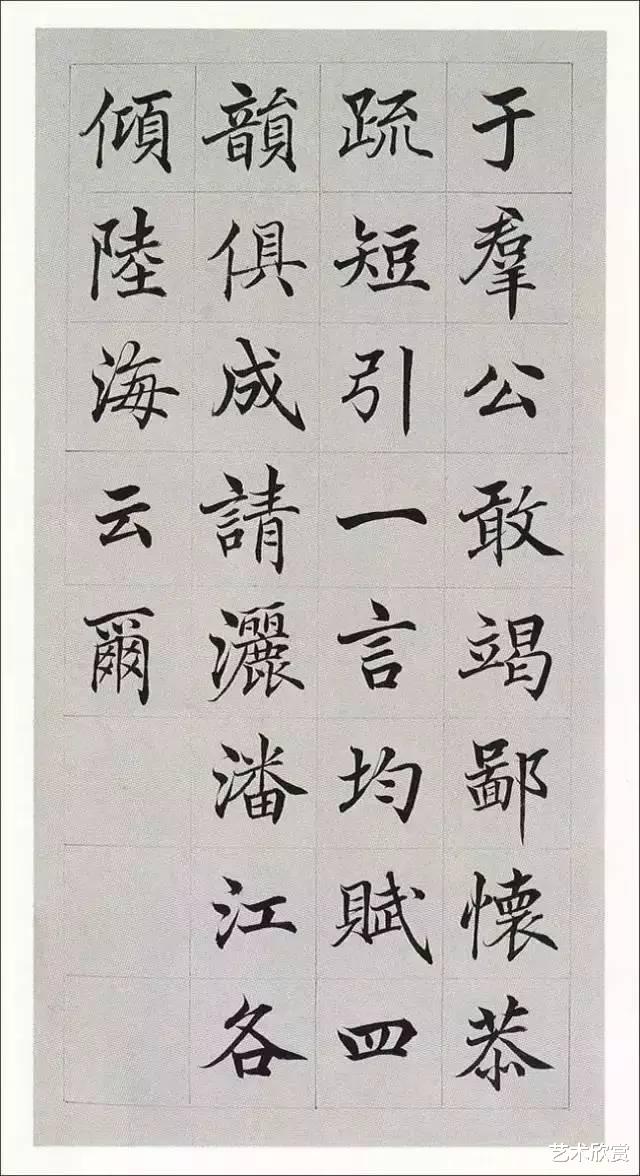 于羣公敢竭鄙懷恭
疏短引一言均賦四
韻俱成請灑潘江各
傾陸海云爾
艺术欣赏